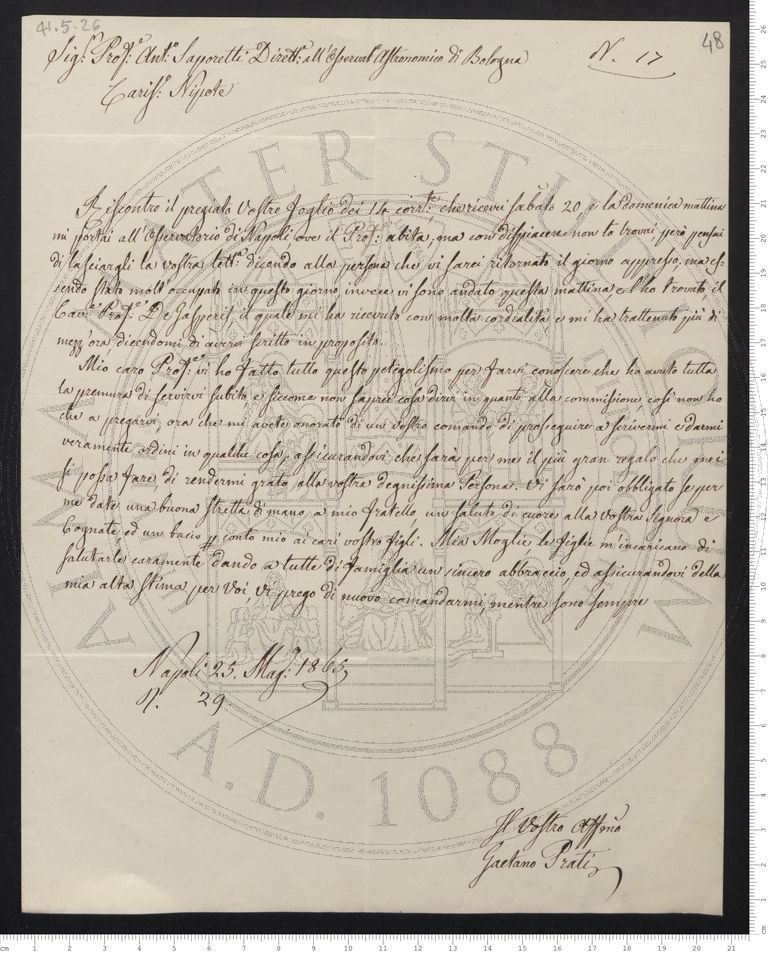 41.5.26
48
Sig.r Prof.e Ant.o Saporetti Dirett.e all'Osservat.o Astronomico di Bologna
N. 17
Cariss.o Nipote
Riscontro il pregiato Vostro foglio dei 14 corr.te che ricevei sabato 20 e la domenica mattina
mi portai all'Osservatorio di Napoli ove il Prof.e abita, ma con dispiacere non lo trovai, però pensai
di lasciargli la vostra lett.a dicendo alla persona che vi sarei ritornato il giorno appresso, ma es-
sendo stato molt'occupato in questo giorno, invece vi sono andato questa mattina e l'ho trovato, il
Cav.e Prof.e De Gasperis, il quale mi ha ricevuto con molta cordialità e mi ha trattenuto più di
mezz'ora dicendomi di avervi scritto in proposito.
Mio caro Prof.e vi ho fatto tutto questo petegolismo per farvi conoscere che ho avuto tutta
la premura di servirvi subito e siccome non saprei cosa dirvi in quanto alla commissione, così non ho
che a pregarvi, ora che mi avete onorato di un vostro comando di proseguire a scrivermi e darmi
veramente ordini in qualche cosa, assicurandovi che sarà per me il più gran regalo che mi
si possa fare di rendermi grato alla vostra degnissima Persona. Vi sarò poi obbligato se per
me date una buona stretta di mano a mio fratello un saluto di cuore alla Vostra Signora e
Cognate, ed un bacio p conto mio ai cari vostri figli. Mia Moglie, le figlie m'incaricano di
salutarle caramente dando a tutte di famiglia un sincero abbraccio, ed assicurandovi della
mia alta stima per Voi, vi prego di nuovo comandarmi, mentre sono sempre
Napoli 25. Mag.o 1865
N. 29.
Il Vostro Aff.mo
Gaetano Prati
ALMA MATER STUDIORUM
A.D. 1088